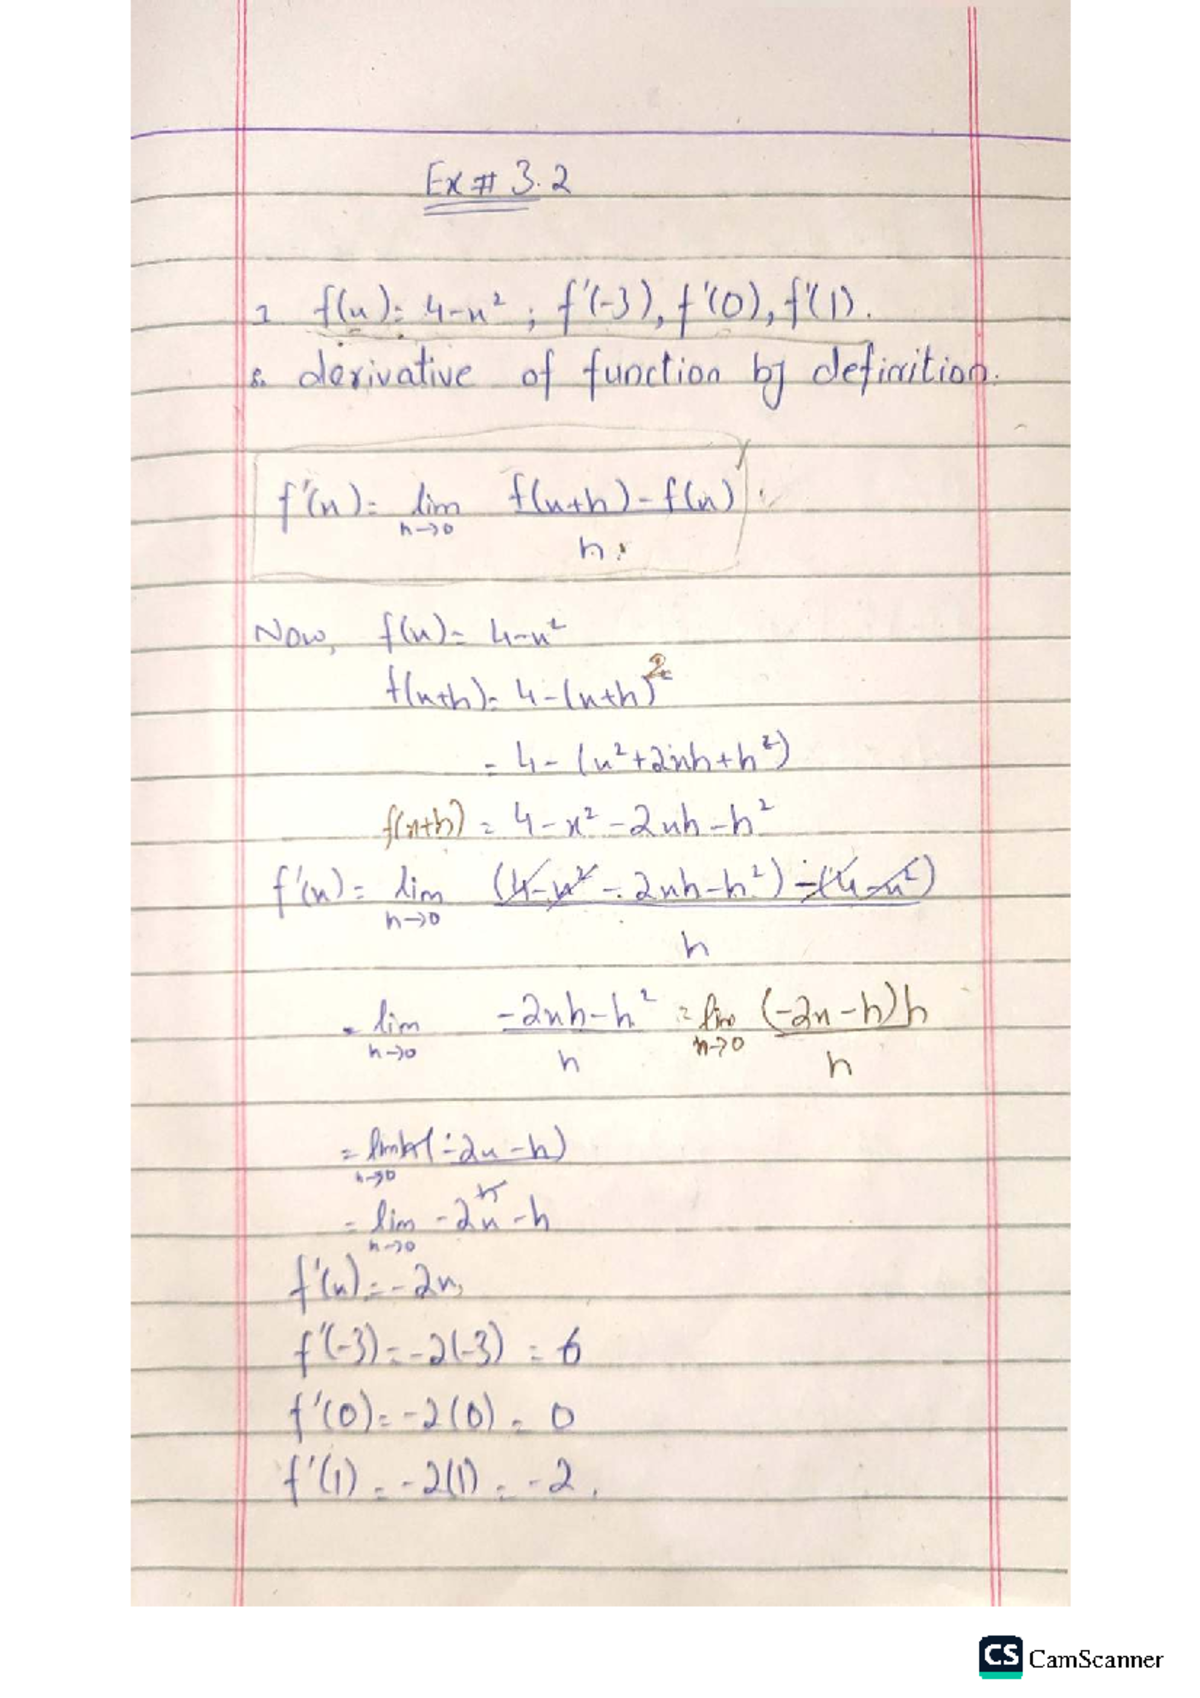 Ex # 3.2
1 f(x) = 4-x² ; f'(-3), f'(0), f'(1).
s. derivative of function by definition.
f'(x) = lim h→0 f(x+h) - f(x) / h
Now, f(x) = 4-x²
f(x+h) = 4-(x+h)²
= 4-(x²+2xh+h²)
f(x+h) = 4-x²-2xh-h²
f'(x) = lim h→0 (4-x²-2xh-h²)-(4-x²) / h
= lim h→0 -2xh-h² / h = lim h→0 (-2x-h)h / h
= lim h→0 (-2x-h)
= lim h→0 -2x-h
f'(x) = -2x,
f'(-3) = -2(-3) = 6
f'(0) = -2(0) = 0
f'(1) = -2(1) = -2.
CS CamScanner